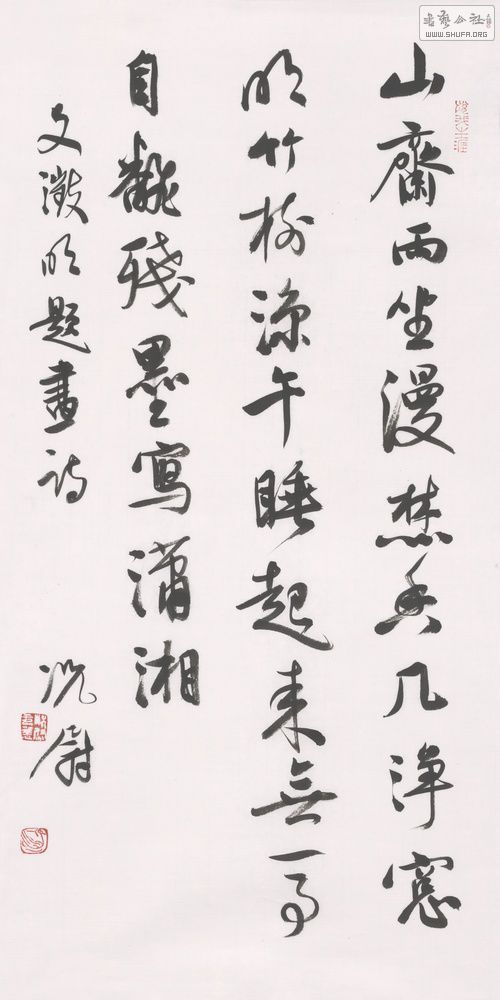 書藝公社
WWW.SHUFA.ORG
山齋雨坐漫焚香几淨窓
明竹樹涼午睡起來無一事
自翻殘墨寫瀟湘
文徵明題畫詩